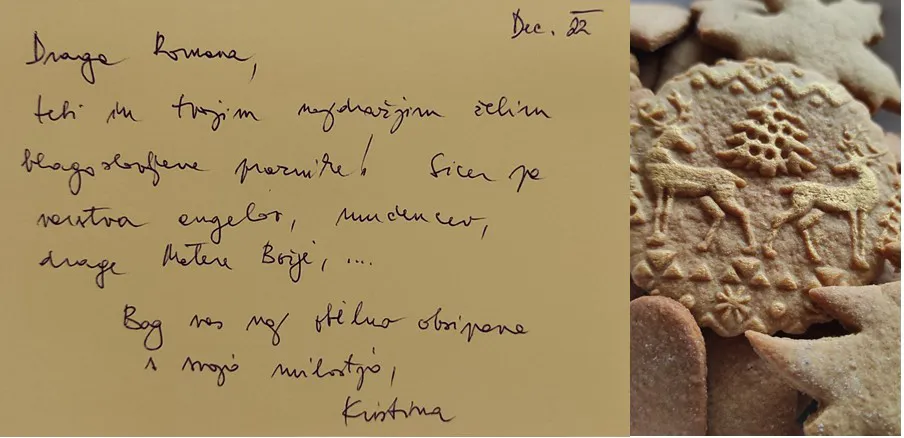 Dec. 22
Draga Romana,
tebi in tvojim najdražjim želim
blagoslovljene praznike! Sicer pa
varstva angelov, mučencev,
drage Matere Božje, ...
Bog vas naj obilno obsipava
s svojo milostjo,
Kristina